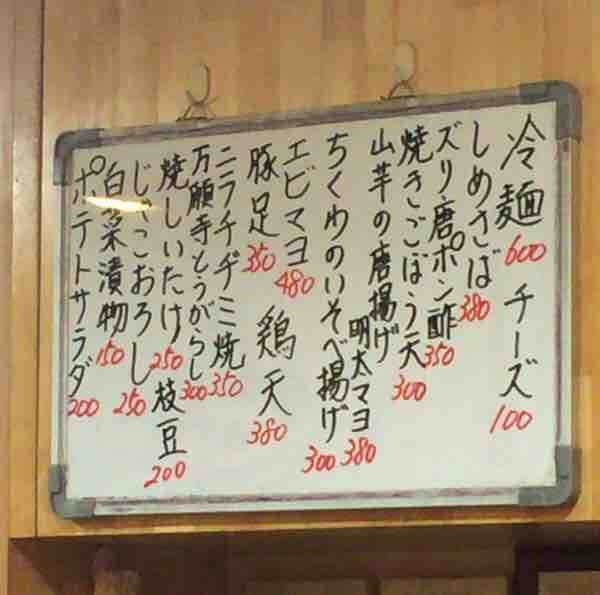 冷麺 600 チーズ 100
しめさば 380
ズリ唐ポン酢 350
焼きごぼう天 300
山芋の唐揚げ 明太マヨ 380
ちくわのいそべ揚げ 300
エビマヨ 480
豚足 350 鶏天 380
ニラチヂミ焼 350
万願寺とうがらし 300
焼しいたけ 250 枝豆 200
じゃこおろし 250
白菜漬物 150
ポテトサラダ 200